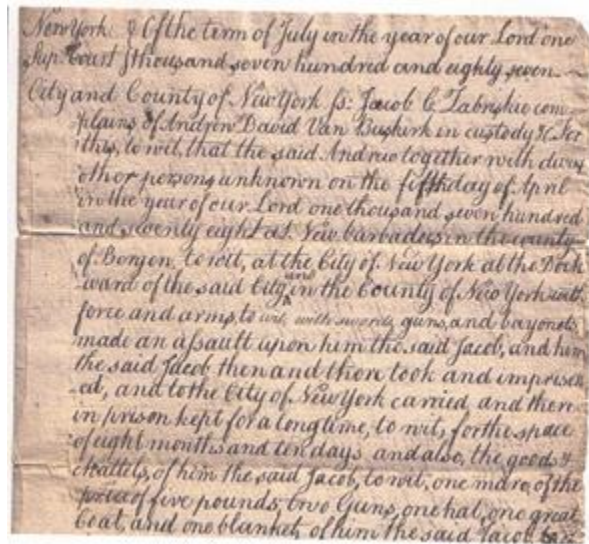 New York } Of the term of July in the year of our Lord one
Sup. Court } thousand seven hundred and eighty seven
City and County of New York ſs: Jacob C Zabriskie com
plains of Andrew David Van Buskirk in custody &c For
this, to wit, that the said Andrew together with divers
other persons unknown on the fifth day of April
in the year of our Lord one thousand seven hundred
and seventy eight at New barbados in the county
of Bergen, to wit, at the City of New York at the Dock
ward of the said City and in the County of New York with
force and arms, to wit, with swords, guns, and bayonets
made an aſsault upon him the said Jacob, and him
the said Jacob then and there took and imprison
ed, and to the City of New York carried, and there
in prison kept for a long time, to wit, for the space
of eight months and ten days and also, the goods &
chattels, of him the said Jacob, to wit, one mare, of the
price of five pounds, two Guns, one hat, one great
Coat, and one blanket, of him the said Jacob